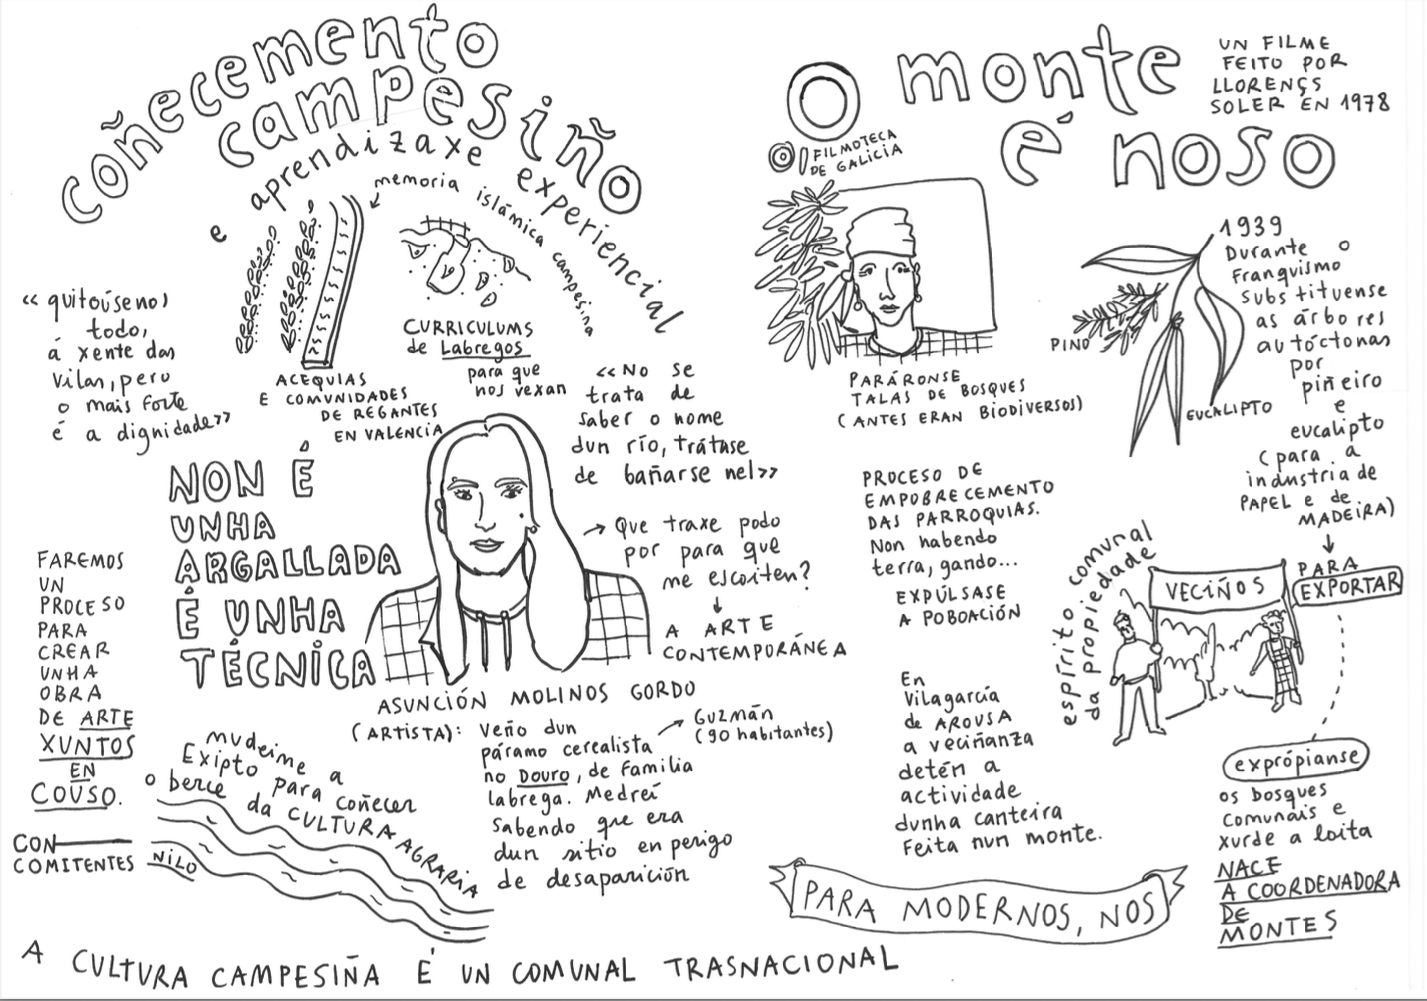 coñecemento
campesiño
e aprendizaxe experiencial
memoria islámica campesina
<< quitóuseno)
todo,
á xente das
vilas, pero
o mais forte
é a dignidade>>
ACEQUIAS
E COMUNIDADES
DE REGANTES
EN VALENCIA
CURRICULUMS
de Labregos
para que
nos vexan
<<No se
trata de
saber o nome
dun río, trátase
de bañarse nel>>
NON É
UNHA
ARGALLADA
É UNHA
TÉCNICA
Que traxe podo
por para que
me escoiten?
A ARTE
CONTEMPORÁNEA
FAREMOS
UN
PROCESO
PARA
CREAR
UNHA
OBRA
DE ARTE
XUNTOS
EN
COUSO.
CON
COMITENTES
ASUNCIÓN MOLINOS GORDO
(ARTISTA): Veño dun
páramo cerealista
no DOURO, de familia
labrega. Medrei
sabendo que era
dun sitio en perigo
de desaparición
GUZMÁN
(90 habitantes)
mudeime a
Exipto para coñecer
o berce da CULTURA AGRARIA
NILO
A CULTURA CAMPESIÑA É UN COMUNAL TRASNACIONAL
O monte
é noso
UN FILME
FEITO POR
LLORENÇS
SOLER EN 1978
FILMOTECA
DE GALICIA
PARÁRONSE
TALAS DE BOSQUES
(ANTES ERAN BIODIVERSOS)
1939
Durante o
franquismo
substituense
as árbores
autóctonas
por
piñeiro
e
eucalipto
(para a
industria de
PAPEL e de
MADEIRA)
PINO
EUCALIPTO
PARA
EXPORTAR
PROCESO DE
EMPOBRECEMENTO
DAS PARROQUIAS.
Non habendo
terra, gando...
EXPÚLSASE
A POBOACIÓN
espírito comunal
da propiedade
VECIÑOS
En
Vilagarcía
de AROUSA
a veciñanza
detén a
actividade
dunha canteira
feita nun monte.
exprópianse
os bosques
comunais e
xurde a loita
NACE
A COORDENADORA
DE
MONTES
PARA MODERNOS, NOS